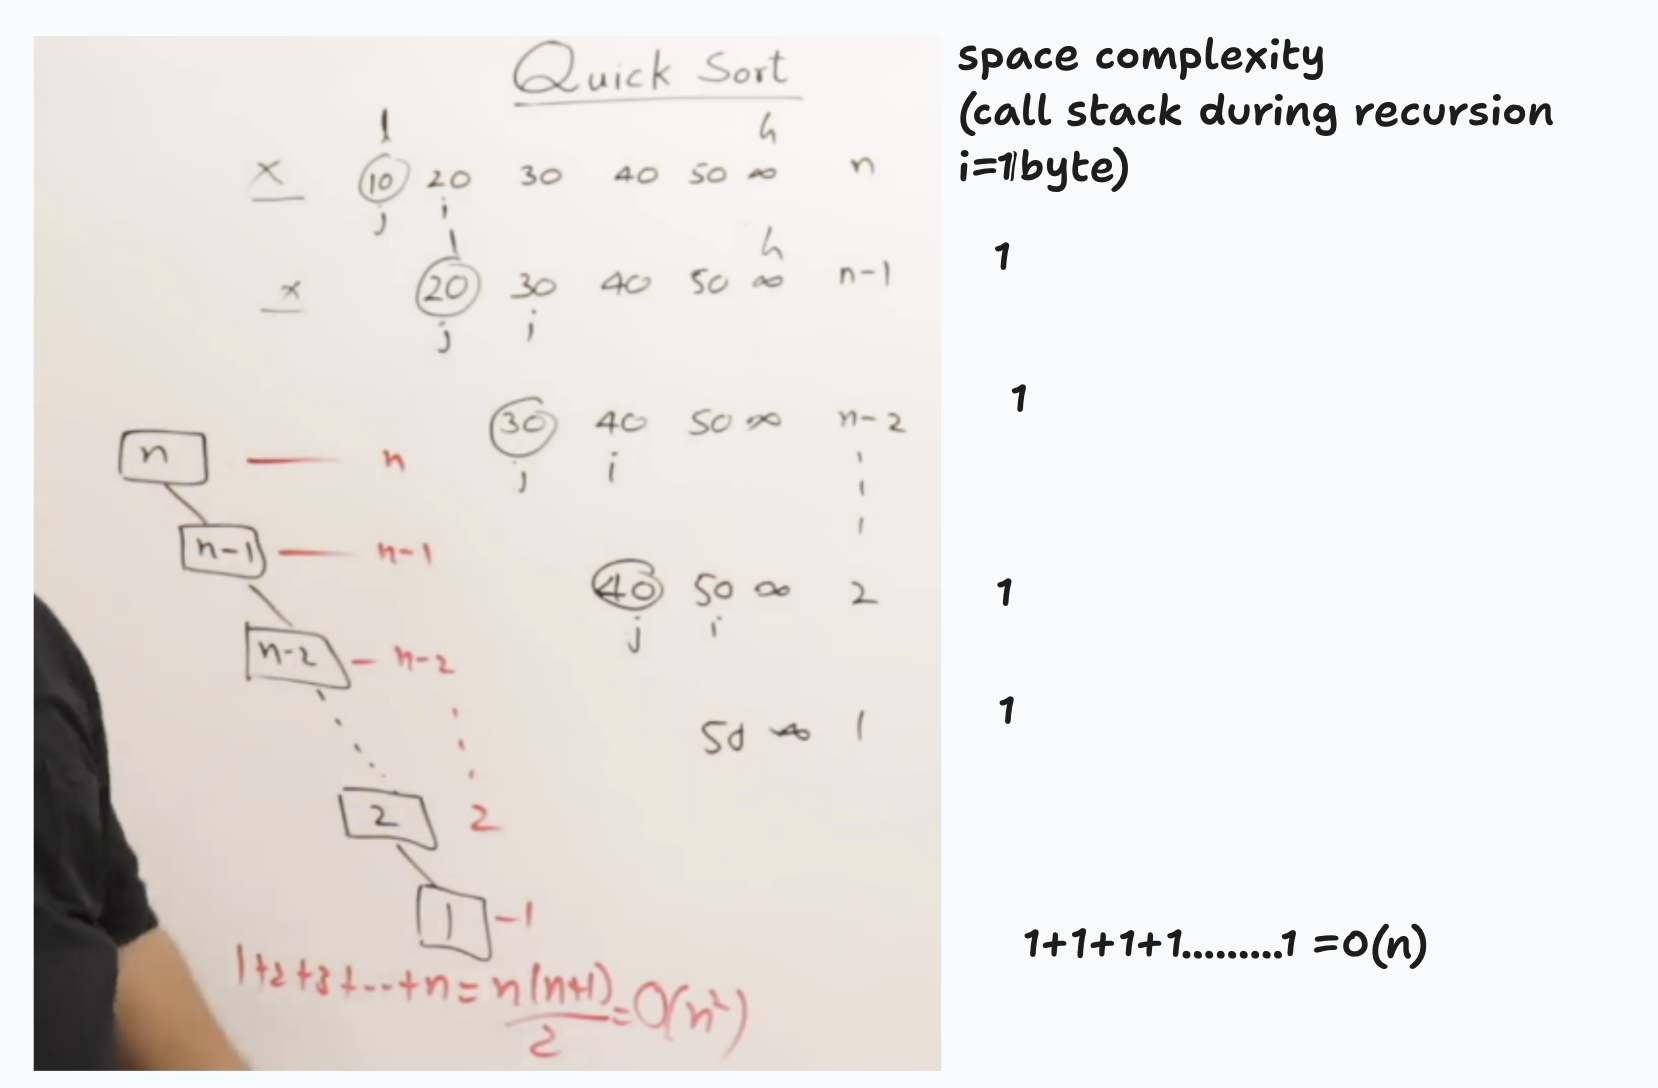 Quick Sort
l h
x 10 20 30 40 50 ∞ n
j i
l h
x 20 30 40 50 ∞ n-1
j i
30 40 50 ∞ n-2
j i
40 50 ∞ 2
j i
50 ∞ 1
n n
n-1 n-1
n-2 n-2
2 2
1 -1
1+2+3+...+n = n(n+1)/2 = O(n²)
space complexity
(call stack during recursion
i=1byte)
1
1
1
1
1+1+1+1.........1 =O(n)